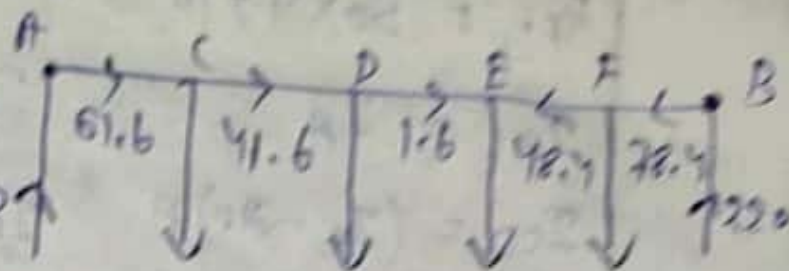 A C D E F B
61.6 41.6 1.6 48.4 78.4 220